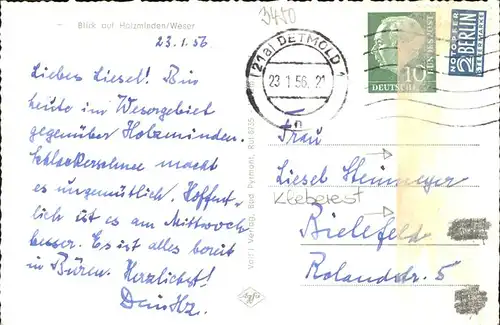 Blick auf Holzminden/Weser
3450
23.1.56
Liebes Liesel! Bin
heute im Wesergebiet
gegenüber Holzminden.
Schlackerschnee macht
es ungemütlich. Hoffent-
lich ist es am Mittwoch
besser. Es ist alles bereit
in Büren. Herzlichst!
Dein Hz.
(21a) DETMOLD 1
23.1.56.-21
10
DEUTSCHE BUNDESPOST
NOTOPFER
2 BERLIN
STEUERMARKE
Frau
Liesel Steinmeyer
Kleberest
Bielefeld
Rolandstr. 5
Verlag, Bad Pyrmont, Ruf 8755
Agfa